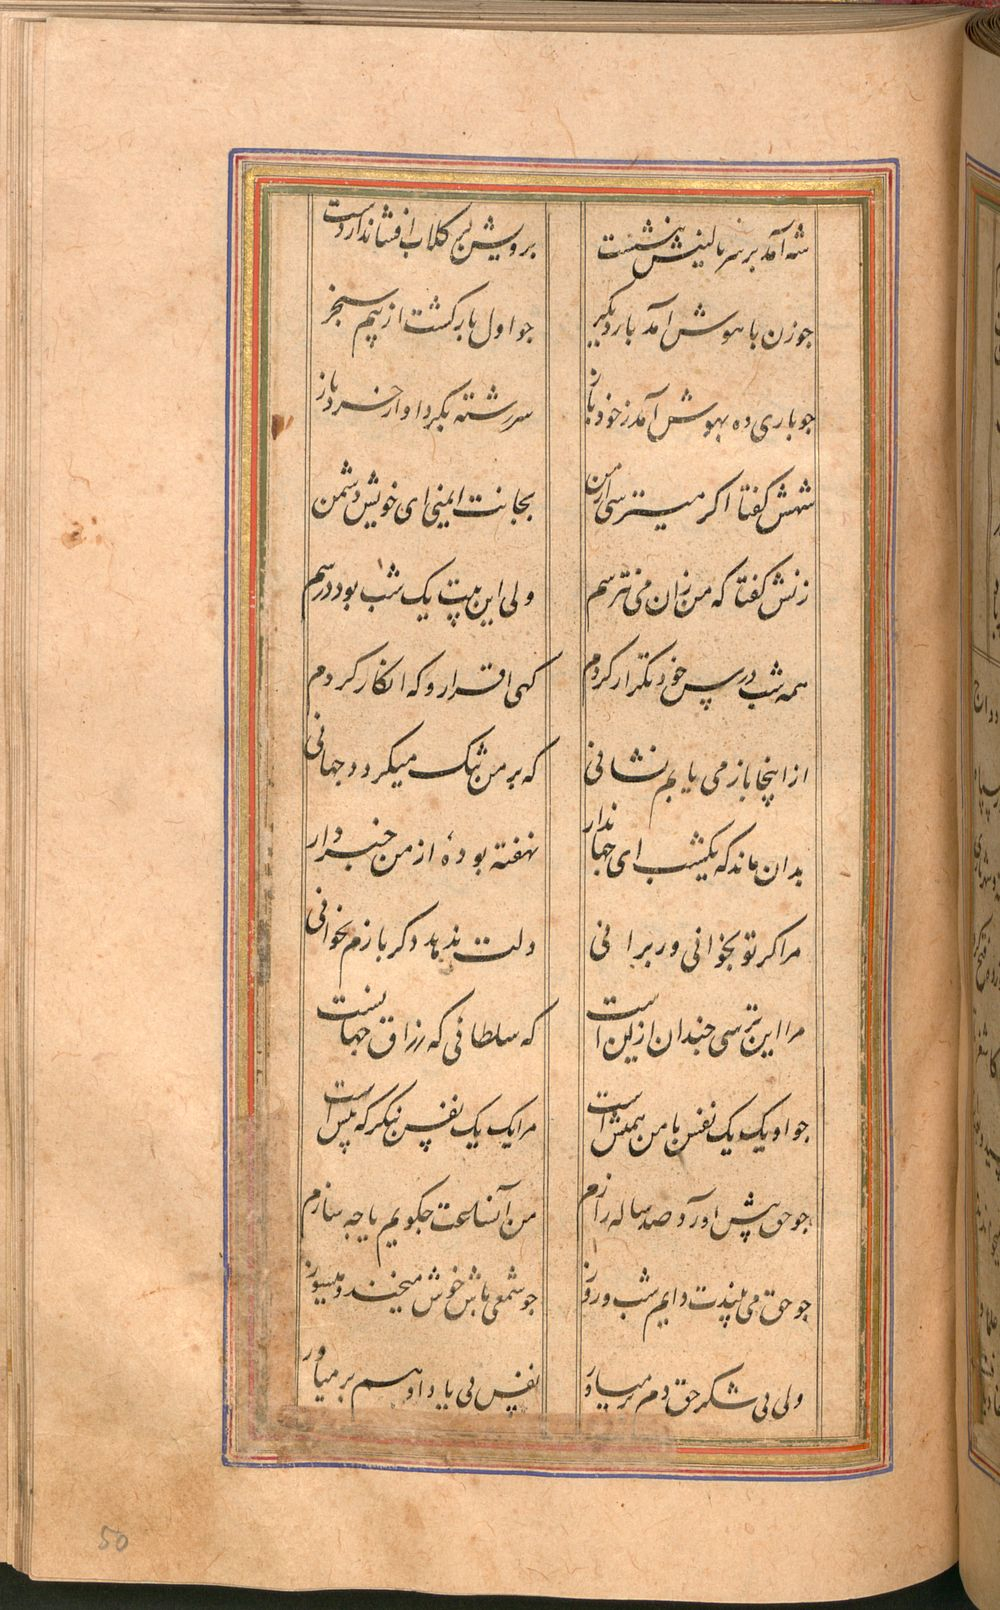 شه آمد بر سر بالینش بنشست
برویش بر کلاب افشاند از دست
جوزن با هوش آمد بار دیکر
جو اول بار کشت از بیم سنجر
جو باری ده بهوش آمد ز خود باز
سر رشته بکرد او از خسرو باز
شهش کفتا اکر میترسی از من
بجانت ایمنی ای خویش دشمن
زنش کفتا که من زان می نترسم
ولی این بیت یک شب بود درسم
همه شب درس خود تکرار کردم
کهی اقرار و که انکار کردم
از اینجا باز می یابم نشانی
که بر من تنک میکردد جهانی
بدان ماند که یکشب ای جهاندار
نهفته بودهٔ از من خبردار
مرا کر تو بخوانی ور برانی
دلت ندهد دکر بازم بخوانی
مرا این ترسی جندان ازین است
که سلطانی که رزاق جهانست
جو او یک یک نفس با من همیش است
مرا یک یک نفس بنکر که بیش است
جو حق پیش آورد صد ساله رازم
من آنساعت جکویم یا جه سازم
جو حق می بیندت دایم شب و روز
جو شمعی باش خوش میخند و میسوز
ولی بی شکر حق دم بر میاور
نفس بی یاد او هم بر میاور
50